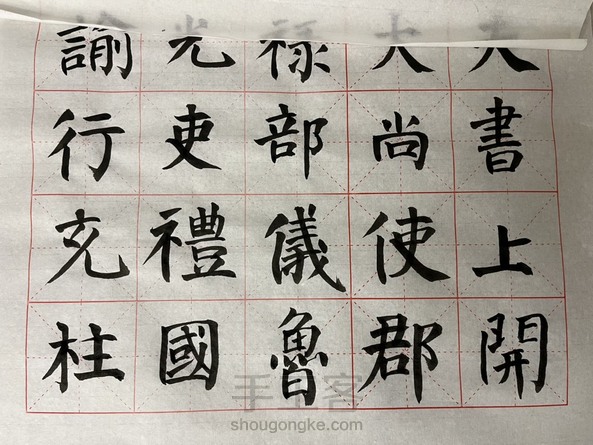 諭光禄大夫
行吏部尚書
充禮儀使上
柱國魯郡開
手工客
shougongke.com